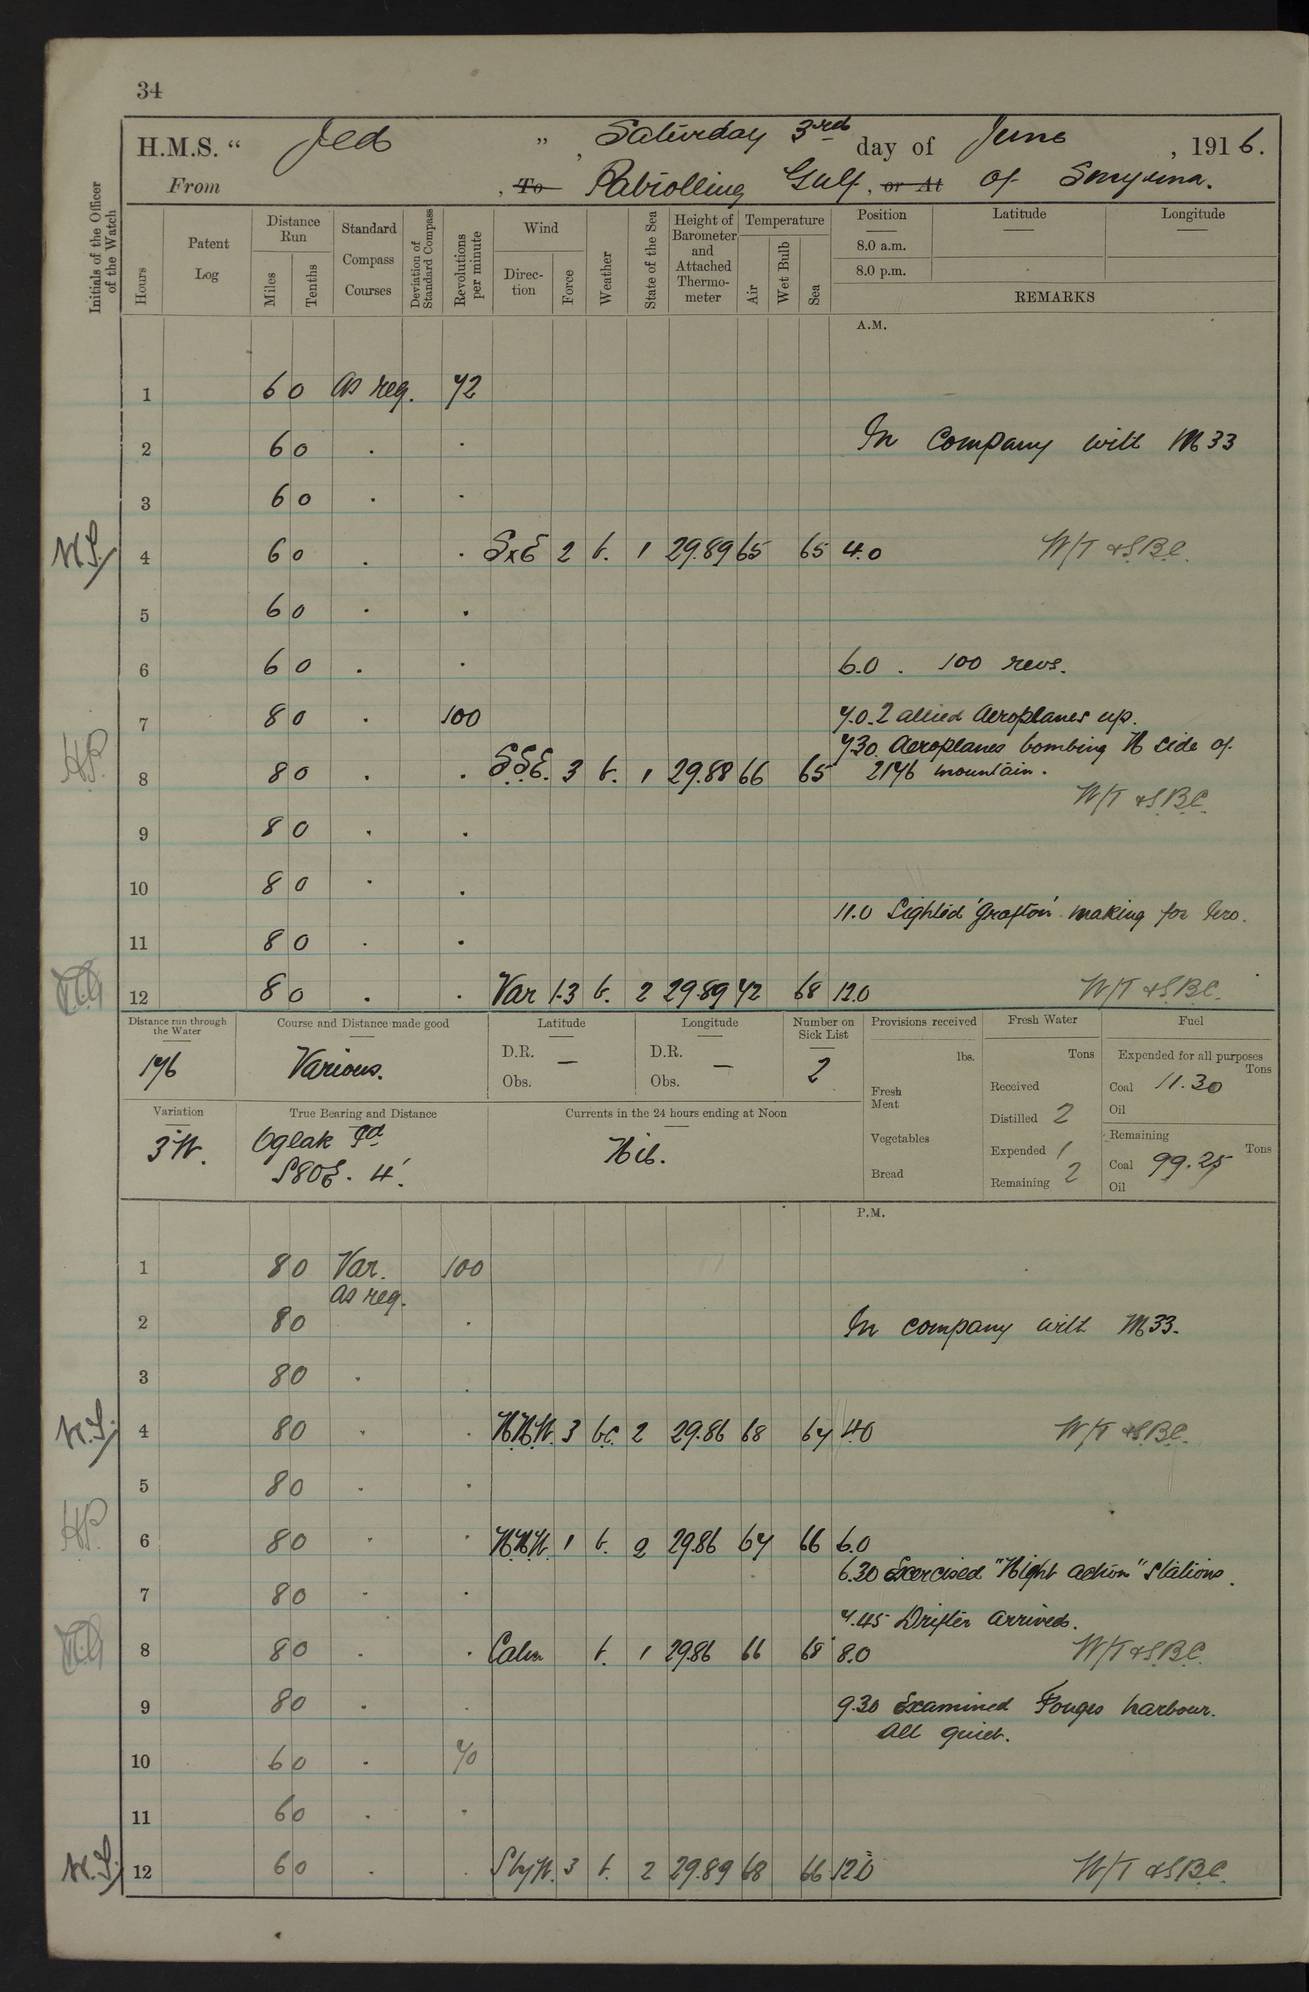 34
H.M.S. “ Jed ” , Saturday 3rd day of June , 1916.
From , To Patrolling Gulf , or At of Smyrna.
Initials of the Officer of the Watch
Hours
Patent Log
Distance Run
Miles
Tenths
Standard Compass Courses
Deviation of Standard Compass
Revolutions per minute
Wind
Direction
Force
Weather
State of the Sea
Height of Barometer and Attached Thermometer
Temperature
Air
Wet Bulb
Sea
Position
Latitude
Longitude
8.0 a.m.
8.0 p.m.
REMARKS
A.M.
1 6 0 as req. 72
2 6 0 . . In Company with M33
3 6 0 . .
N.S. 4 6 0 . . SxE 2 b. 1 29.89 65 65 4.0 W/T & S.B.C.
5 6 0 . .
6 6 0 . . 6.0 . 100 revs.
7 8 0 . 100 7.0. 2 allied Aeroplanes up.
7.30. Aeroplanes bombing N side of
H.P. 8 8 0 . . S.S.E. 3 b. 1 29.88 66 65 2176 mountain.
W/T & S.B.C.
9 8 0 . .
10 8 0 . .
11.0 Sighted 'Grafton' making for Iero.
11 8 0 . .
12 8 0 . . Var 1-3 b. 2 29.89 72 68 12.0 W/T & S.B.C.
Distance run through the Water
176
Course and Distance made good
Various.
Latitude
D.R. —
Obs.
Longitude
D.R. —
Obs.
Number on Sick List
2
Provisions received
lbs.
Fresh Meat
Vegetables
Bread
Fresh Water
Tons
Received
Distilled 2
Expended 1
Remaining 2
Fuel
Expended for all purposes
Tons
Coal 11.30
Oil
Remaining
Tons
Coal 99.25
Oil
Variation
3°W.
True Bearing and Distance
Oglak Id
S80E. 4'.
Currents in the 24 hours ending at Noon
Nil.
P.M.
1 8 0 Var. 100
as req.
2 8 0 . In company with M33.
3 8 0 . .
N.S. 4 8 0 . . N.N.W. 3 b.c. 2 29.86 68 67 4.0 W/T & S.B.C.
5 8 0 . .
H.P. 6 8 0 . . N.N.W. 1 b. 2 29.86 67 66 6.0
6.30 Exercised "Night action" stations.
7 8 0 . .
7.45 Drifter arrived.
8 8 0 . . Calm b. 1 29.86 66 68 8.0 W/T & S.B.C.
9 8 0 . . 9.30 Examined Fouges harbour.
All quiet.
10 6 0 . 70
11 6 0 . .
N.S. 12 6 0 . . SbyW. 3 b. 2 29.89 68 66 12.0 W/T & S.B.C.